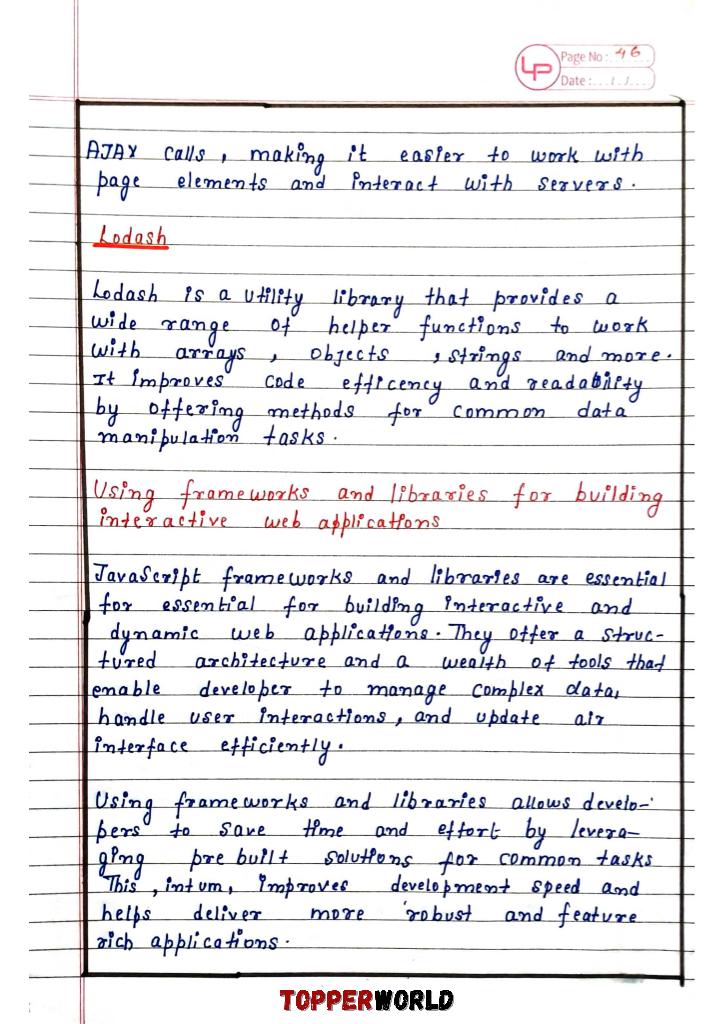 LP
Page No: 46
Date: ... / ... / ...
AJAX calls, making it easier to work with
page elements and interact with servers.
Lodash
Lodash is a utility library that provides a
wide range of helper functions to work
with arrays, objects, strings and more.
It improves code efficency and readability
by offering methods for common data
manipulation tasks.
Using frameworks and libraries for building
interactive web applications
JavaScript frameworks and libraries are essential
for essential for building interactive and
dynamic web applications. They offer a struc-
tured architecture and a wealth of tools that
enable developer to manage complex data,
handle user interactions, and update air
interface efficiently.
Using frameworks and libraries allows develo-
pers to save time and effort by levera-
ging pre built solutions for common tasks
This, intum, improves development speed and
helps deliver more robust and feature
rich applications.
TOPPERWORLD